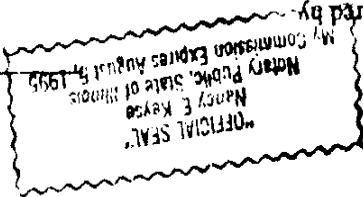 "OFFICIAL SEAL"
Nancy E. Keyse
Notary Public, State of Illinois
My Commission Expires August 5, 1995
red by